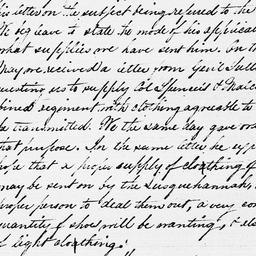 his letter on the subject being referred to the
We beg leave to state the mode of his applicati
what supplies we have sent him. On t
May we received a letter from Genl. Sulli
questing us to supply Col Spencers &
bined regiment with clothing agreeable to
be transmitted. We the same day gave or
that purpose. In the same letter he exp
hope that a proper supply of cloathing f
may be sent on by the Susquehannah,
proper person to deal them out, a very con
quantity of shoes will be wanting, & als
of light cloathing.